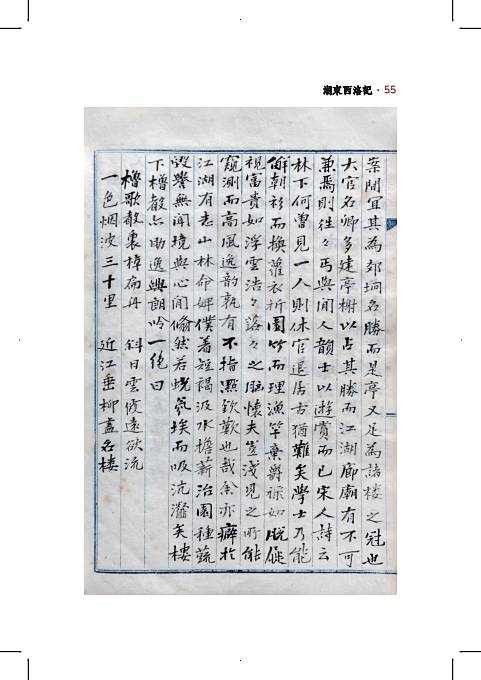 湖東西洛記 · 55
案間宜其為郊坰名勝而是亭又足為諸樓之冠也
大官名卿多建亭榭以占其勝而江湖廊廟有不可
兼焉則徃々丐與閒人韻士以遊賞而已宋人詩云
林下何曾見一人則休官退居古猶難矣學士乃能
解朝衫而換蘿衣祈園竹而理漁竿棄爵祿如脫屣
視富貴如浮雲浩々落々之胸懷夫豈淺見之所能
窺測而高風逸韵孰有不指點欽歎也哉余亦癖於
江湖有志山林命婢僕着短褐汲水擔薪治園種蔬
毀譽無聞境與心閒翛然若蛻氛埃而吸沆瀣矣樓
下櫓聲亦助逸興朗吟一絶曰
櫓歌聲裏棹扁舟 斜日雲霞遠欲流
一色烟波三十里 近江垂柳盡名樓